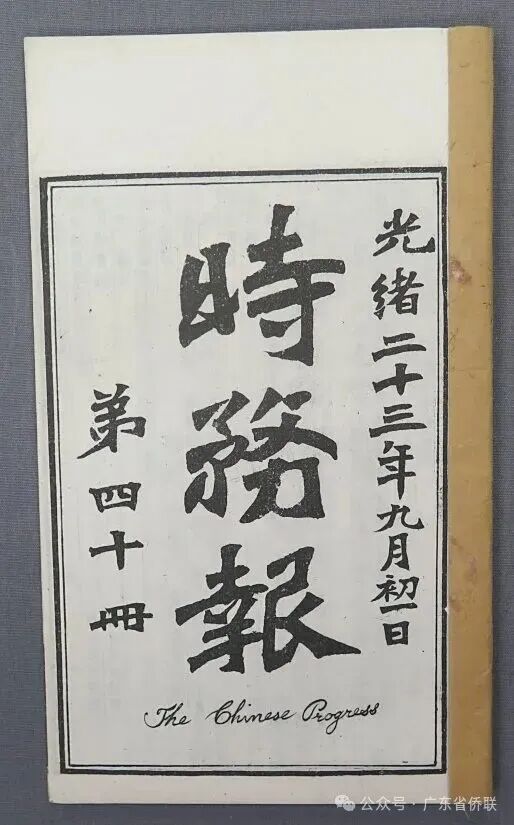 光緒二十三年九月初一日
時務報
第四十冊
The Chinese Progress
公众号·广东省侨联